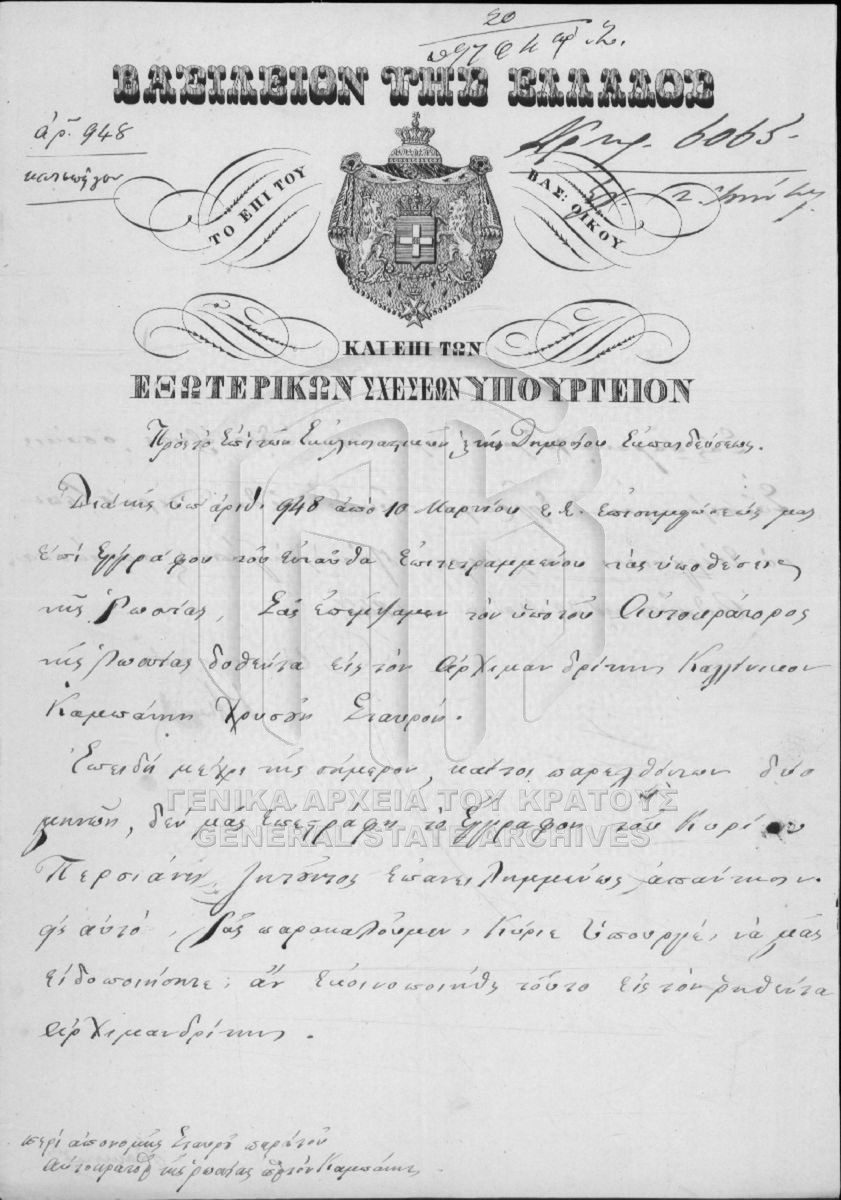 20
ΒΑΣΙΛΕΙΟΝ ΤΗΣ ΕΛΛΑΔΟΣ
ἀρ. 948
κατεπεῖγον
Πρωτ. 6065.
ΤΟ ΕΠΙ ΤΟΥ
ΒΑΣ: ΟΙΚΟΥ
ΚΑΙ ΕΠΙ ΤΩΝ
ΕΞΩΤΕΡΙΚΩΝ ΣΧΕΣΕΩΝ ΥΠΟΥΡΓΕΙΟΝ
Πρὸς τὸ Ἐπὶ τῶν Ἐκκλησιαστικῶν καὶ τῆς Δημοσίου Ἐκπαιδεύσεως.
Διὰ τῆς ὑπ' ἀριθ. 948 ἀπὸ 10 Μαρτίου ἐ. ἔ. ἐπισημειώσεώς μας
ἐπὶ ἐγγράφου τοῦ ἐνταῦθα Ἐπιτετραμμένου τὰς ὑποθέσεις
τῆς Ῥωσσίας, Σᾶς ἐπέμψαμεν τὸν ὑπὸ τοῦ Αὐτοκράτορος
τῆς Ῥωσσίας δοθέντα εἰς τὸν Ἀρχιμανδρίτην Καλλίνικον
Καμπάνην Χρυσοῦν Σταυρόν.
Ἐπειδὴ μέχρι τῆς σήμερον, καίτοι παρελθόντων δύο
μηνῶν, δὲν μᾶς ἐπεστράφη τὸ ἔγγραφον τοῦ Κυρίου
Περσιάνη, ζητοῦντος ἐπανειλημμένως ἀπάντησιν
ἐπ' αὐτό, Σᾶς παρακαλοῦμεν, Κύριε Ὑπουργέ, νὰ μᾶς
εἰδοποιήσητε, ἂν ἐκοινοποιήθη τοῦτο εἰς τὸν ῥηθέντα
Ἀρχιμανδρίτην.
περὶ ἀπονομῆς Σταυροῦ παρὰ τοῦ
Αὐτοκράτορ τῆς Ῥωσσίας τὸν Καμπάνην.
ΓΕΝΙΚΑ ΑΡΧΕΙΑ ΤΟΥ ΚΡΑΤΟΥΣ
GENERAL STATE ARCHIVES